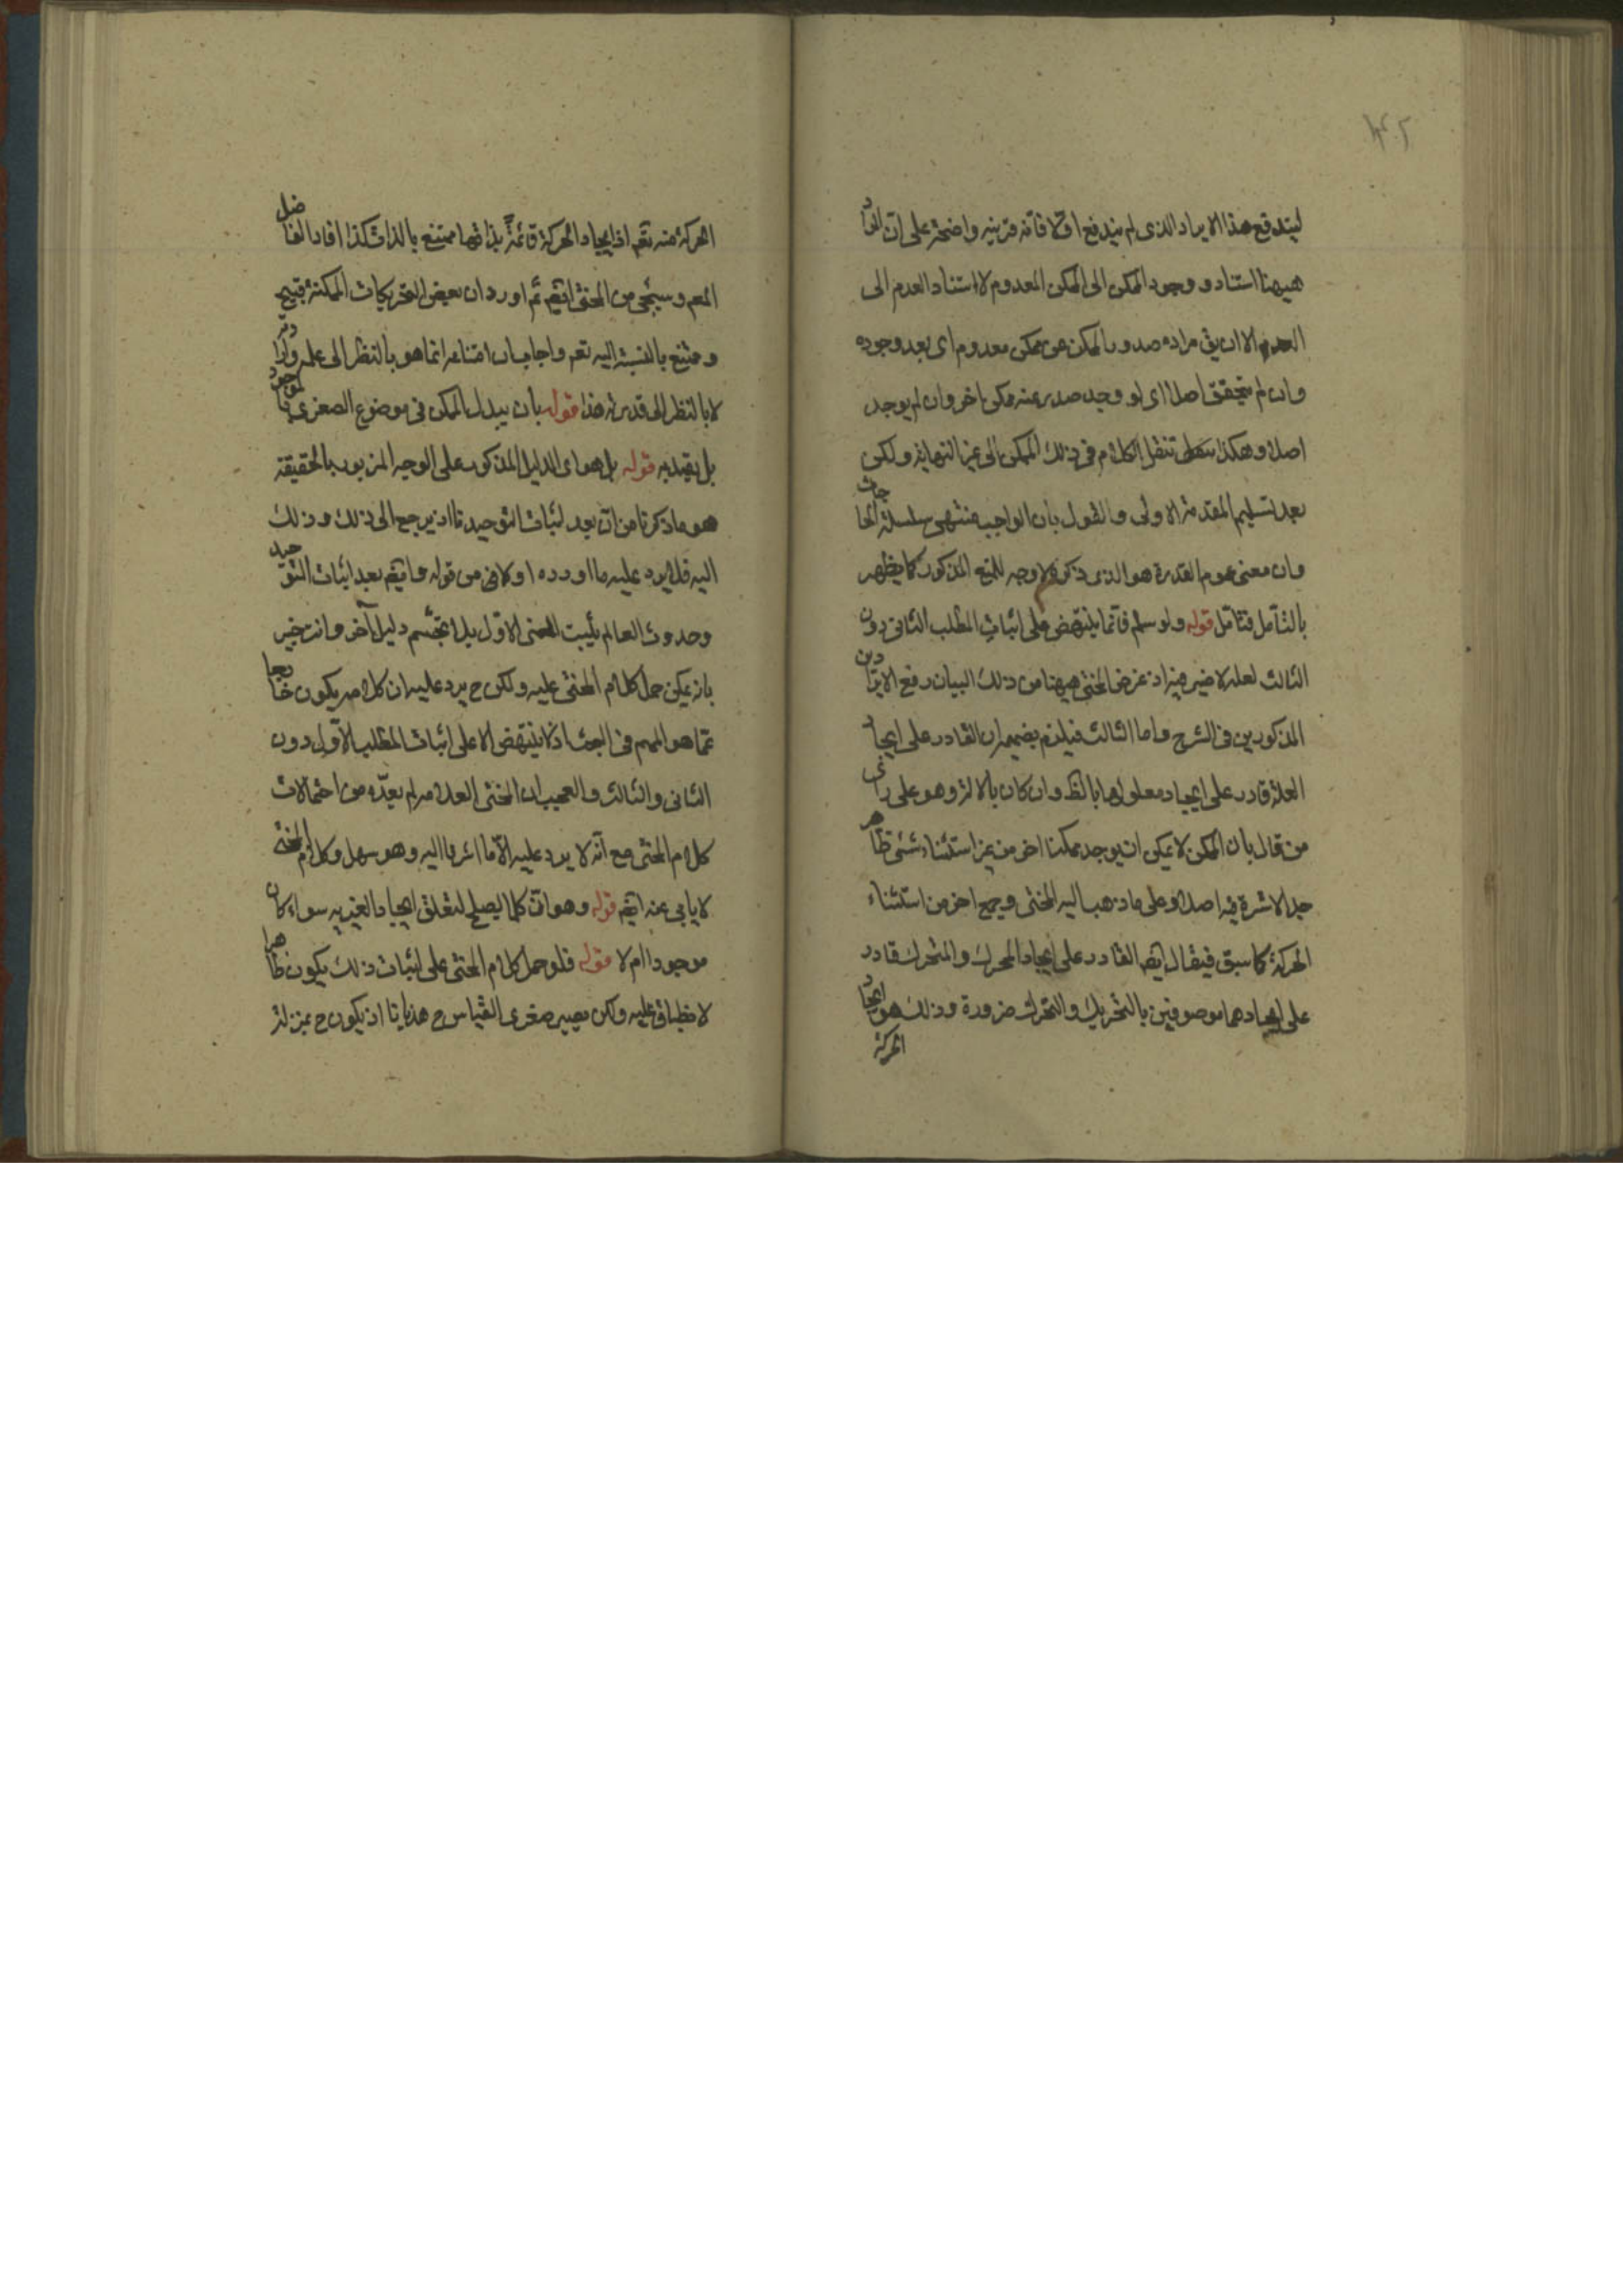 ليندفع هذا الايراد الذى لم يندفع اولا فانه قرينه واضحة على ان الفا
ههنا استناد وجود الممكن الى الممكن المعدوم لا استناد العدم الى
العدم الا ان يق مراده صدور الممكن عن ممكن معدوم اى بعد وجوده
وان لم يتحقق اصلا اى لو وجد صدر عنه ممكن اخر وان لم يوجد
اصلا وهكذا ننقل الكلام فى ذلك الممكن الى غير النهاية ولكن
بعد تسليم المقدمة الاولى والقول بان الواجب منتهى سلسلة الحاجات
وان معنى عموم القدرة هو الذى ذكره لا وجه للمنع المذكور كما يظهر
بالتأمل فتأمل قوله ولو سلم فانما ينتهض على اثبات المطلب الثانى دون
الثالث لعله لا ضير فيه اذ غرض المحشى ههنا من ذلك البيان رفع الايرادين
المذكورين فى الشرح واما الثالث فيلزم بضميمة ان القادر على ايجاد
العلة قادر على ايجاد معلولها بالظ وان كان بالالة وهو على رأى
من قال بان الممكن لا يمكن ان يوجد ممكنا اخر من غير استثناء شئ ظاهر
جدا لا شرة فيه اصلا وعلى ما ذهب اليه المحشى وجمع اخر من استثناء
الحركة كما سبق فيقال ايضا القادر على ايجاد المحرك والمتحرك قادر
على ايجادهما موصوفين بالتحريك والتحرك ضرورة وذلك هو ايجاد
الحركة
الحركة منه تعم اذ ايجاد الحركة قائمة بذاتها ممتنع بالذات كذا افاد الفاضل
المعم وسيجئ من المحشى ايضا ثم اورد ان بعض التحريكات الممكنة قبيح
وممتنع بالنسبة اليه تعم واجاب بان امتناعه انما هو بالنظر الى علمه وارادته
لا بالنظر الى قدرته هذا قوله بان يبدل الممكن فى موضوع الصغرى بالموجود
بل يقيد به قوله بل هو اى الدليل المذكور على الوجه المزبور بالحقيقة
هو ما ذكرنا من ان بعد اثبات التوحيد تا اذ يرجع الى ذلك وذلك
اليه فلا يرد عليه ما اورده اولا فى من قوله وايضا بعد اثبات التوحيد
وحدوث العالم يثبت المعنى الاول بلا تجشم دليل آخر وانت خبير
بانه يمكن حمل كلام المحشى عليه ولكن ح يرد عليه ان كلامه يكون خارجا
عما هو المهم فى البحث اذ لا ينتهض الا على اثبات المطلب الاول دون
الثانى والثالث والعجيب ان المحشى العلامه لم يعدّه من احتمالات
كلام المحشى مع انه لا يرد عليه الا ما اشرنا اليه وهو سهل وكلام المحشى
لا يابى عنه ايضا قوله وهو ان كلما يصلح لتعلق ايجاد الغير به سواء كان
موجودا ام لا قوله فلو حمل كلام المحشى على اثبات ذلك يكون ظاهرا
لانطباق عليه ولكن يصير صغرى القياس ح هذيانا اذ يكون ح بمنزلة